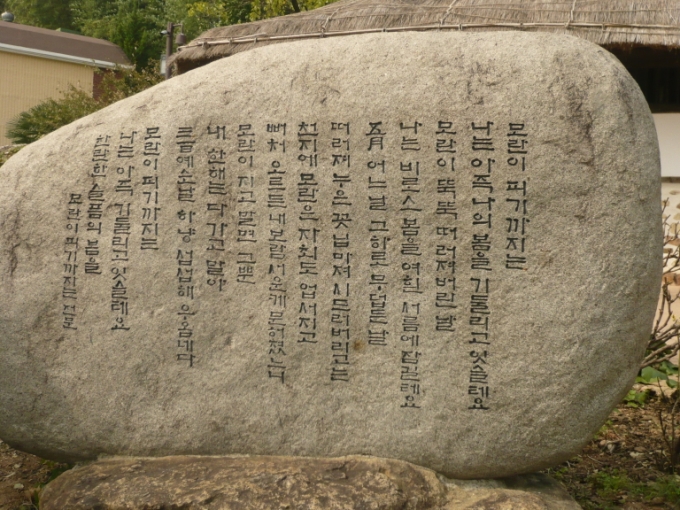 모란이 피기까지는
나는 아즉 나의 봄을 기둘리고 잇슬레요
모란이 뚝뚝 떠러져버린 날
나는 비로소 봄을 여흰 서름에 잠길테요
五月 어느날 그 하로 무덥든 날
떠러져 누은 꽃닙마져 시드러버리고는
천지에 모란은 자최도 업서지고
뻐처 오르든 내 보람 서운케 문허졌느니
모란이 지고 말면 그뿐
내 한해는 다 가고 말아
三百예순날 하냥 섭섭해 우옵네다
모란이 피기까지는
나는 아즉 기둘리고 잇슬레요
찬란한 슬픔의 봄을
모란이 피기까지는 전문